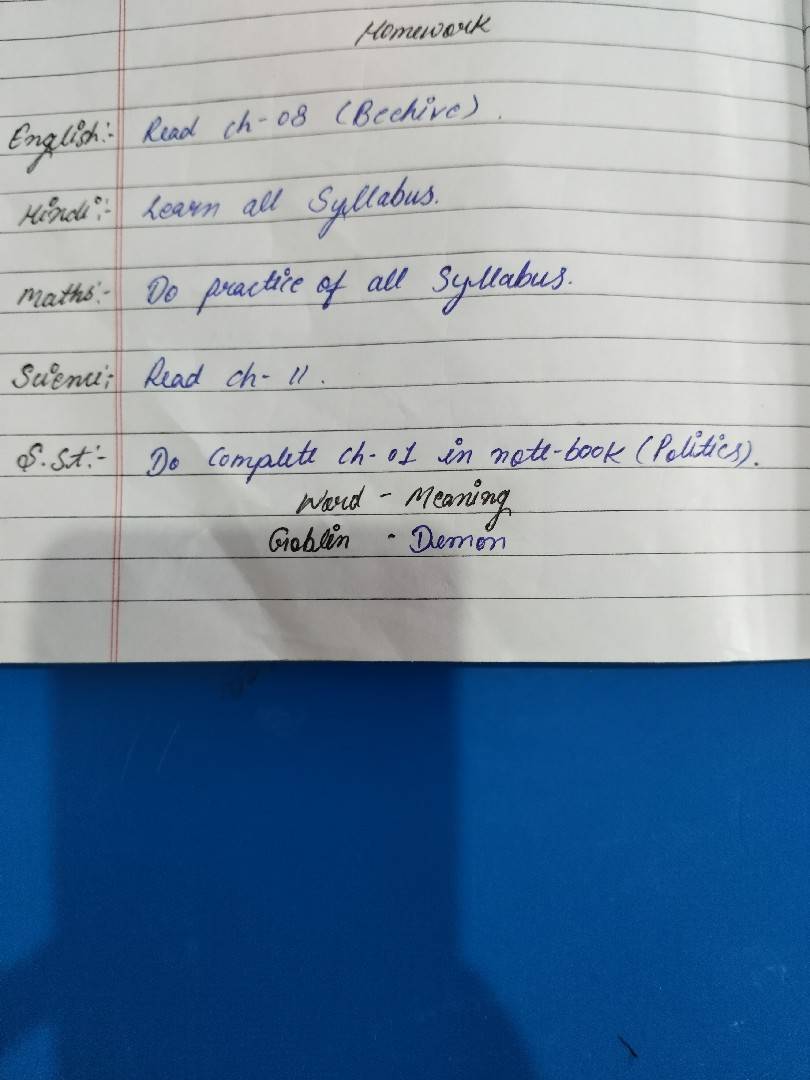 Homework
English:- Read ch-08 (Beehive).
Hindi:- Learn all Syllabus.
Maths:- Do practice of all Syllabus.
Science:- Read ch-11.
S.St:- Do Complete ch-01 in note-book (Politics).
Word - Meaning
Goblin - Demon